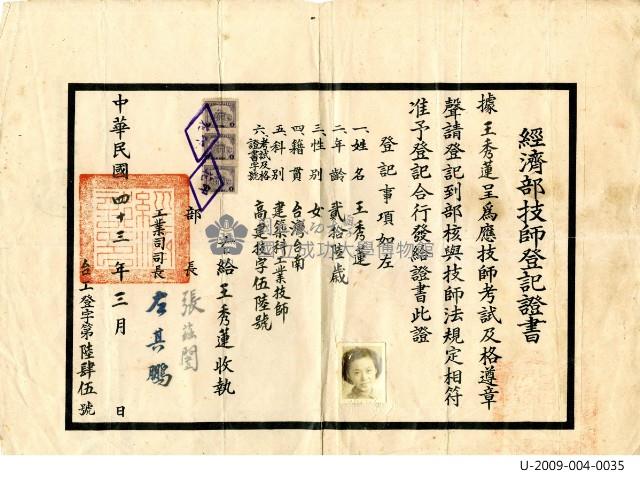 經濟部技師登記證書
據王秀蓮呈為應技師考試及格遵章
聲請登記到部核與技師法規定相符
准予登記合行發給證書此證
登記事項如左
一、姓名 王秀蓮
二、年齡 貳拾陸歲
三、性別 女
四、籍貫 台灣台南
五、科別 建築科工業技師
六、考試及格證書字號 高建技字伍陸號
右給王秀蓮收執
部長 張茲闓
工業司司長 左其鵬
中華民國四十三年三月 日
台工登字第陸肆伍號
國立成功大學博物館
U-2009-004-0035